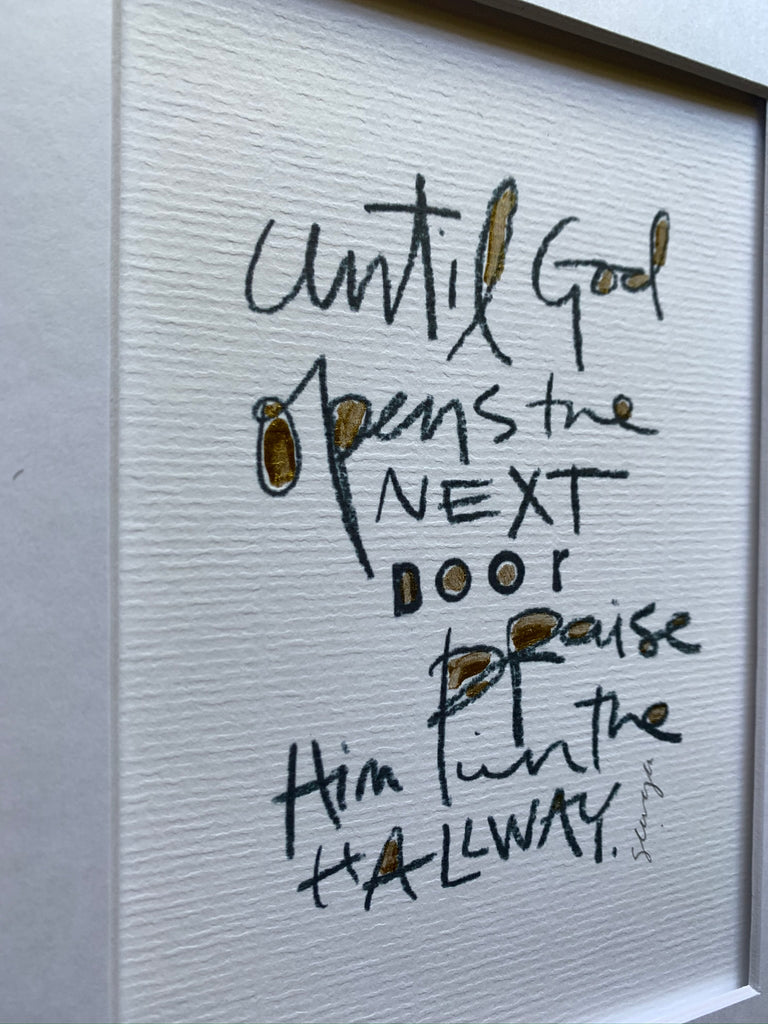 until God
opens the
NEXT
DOOr
pRaise
Him in the
HALLWAY.